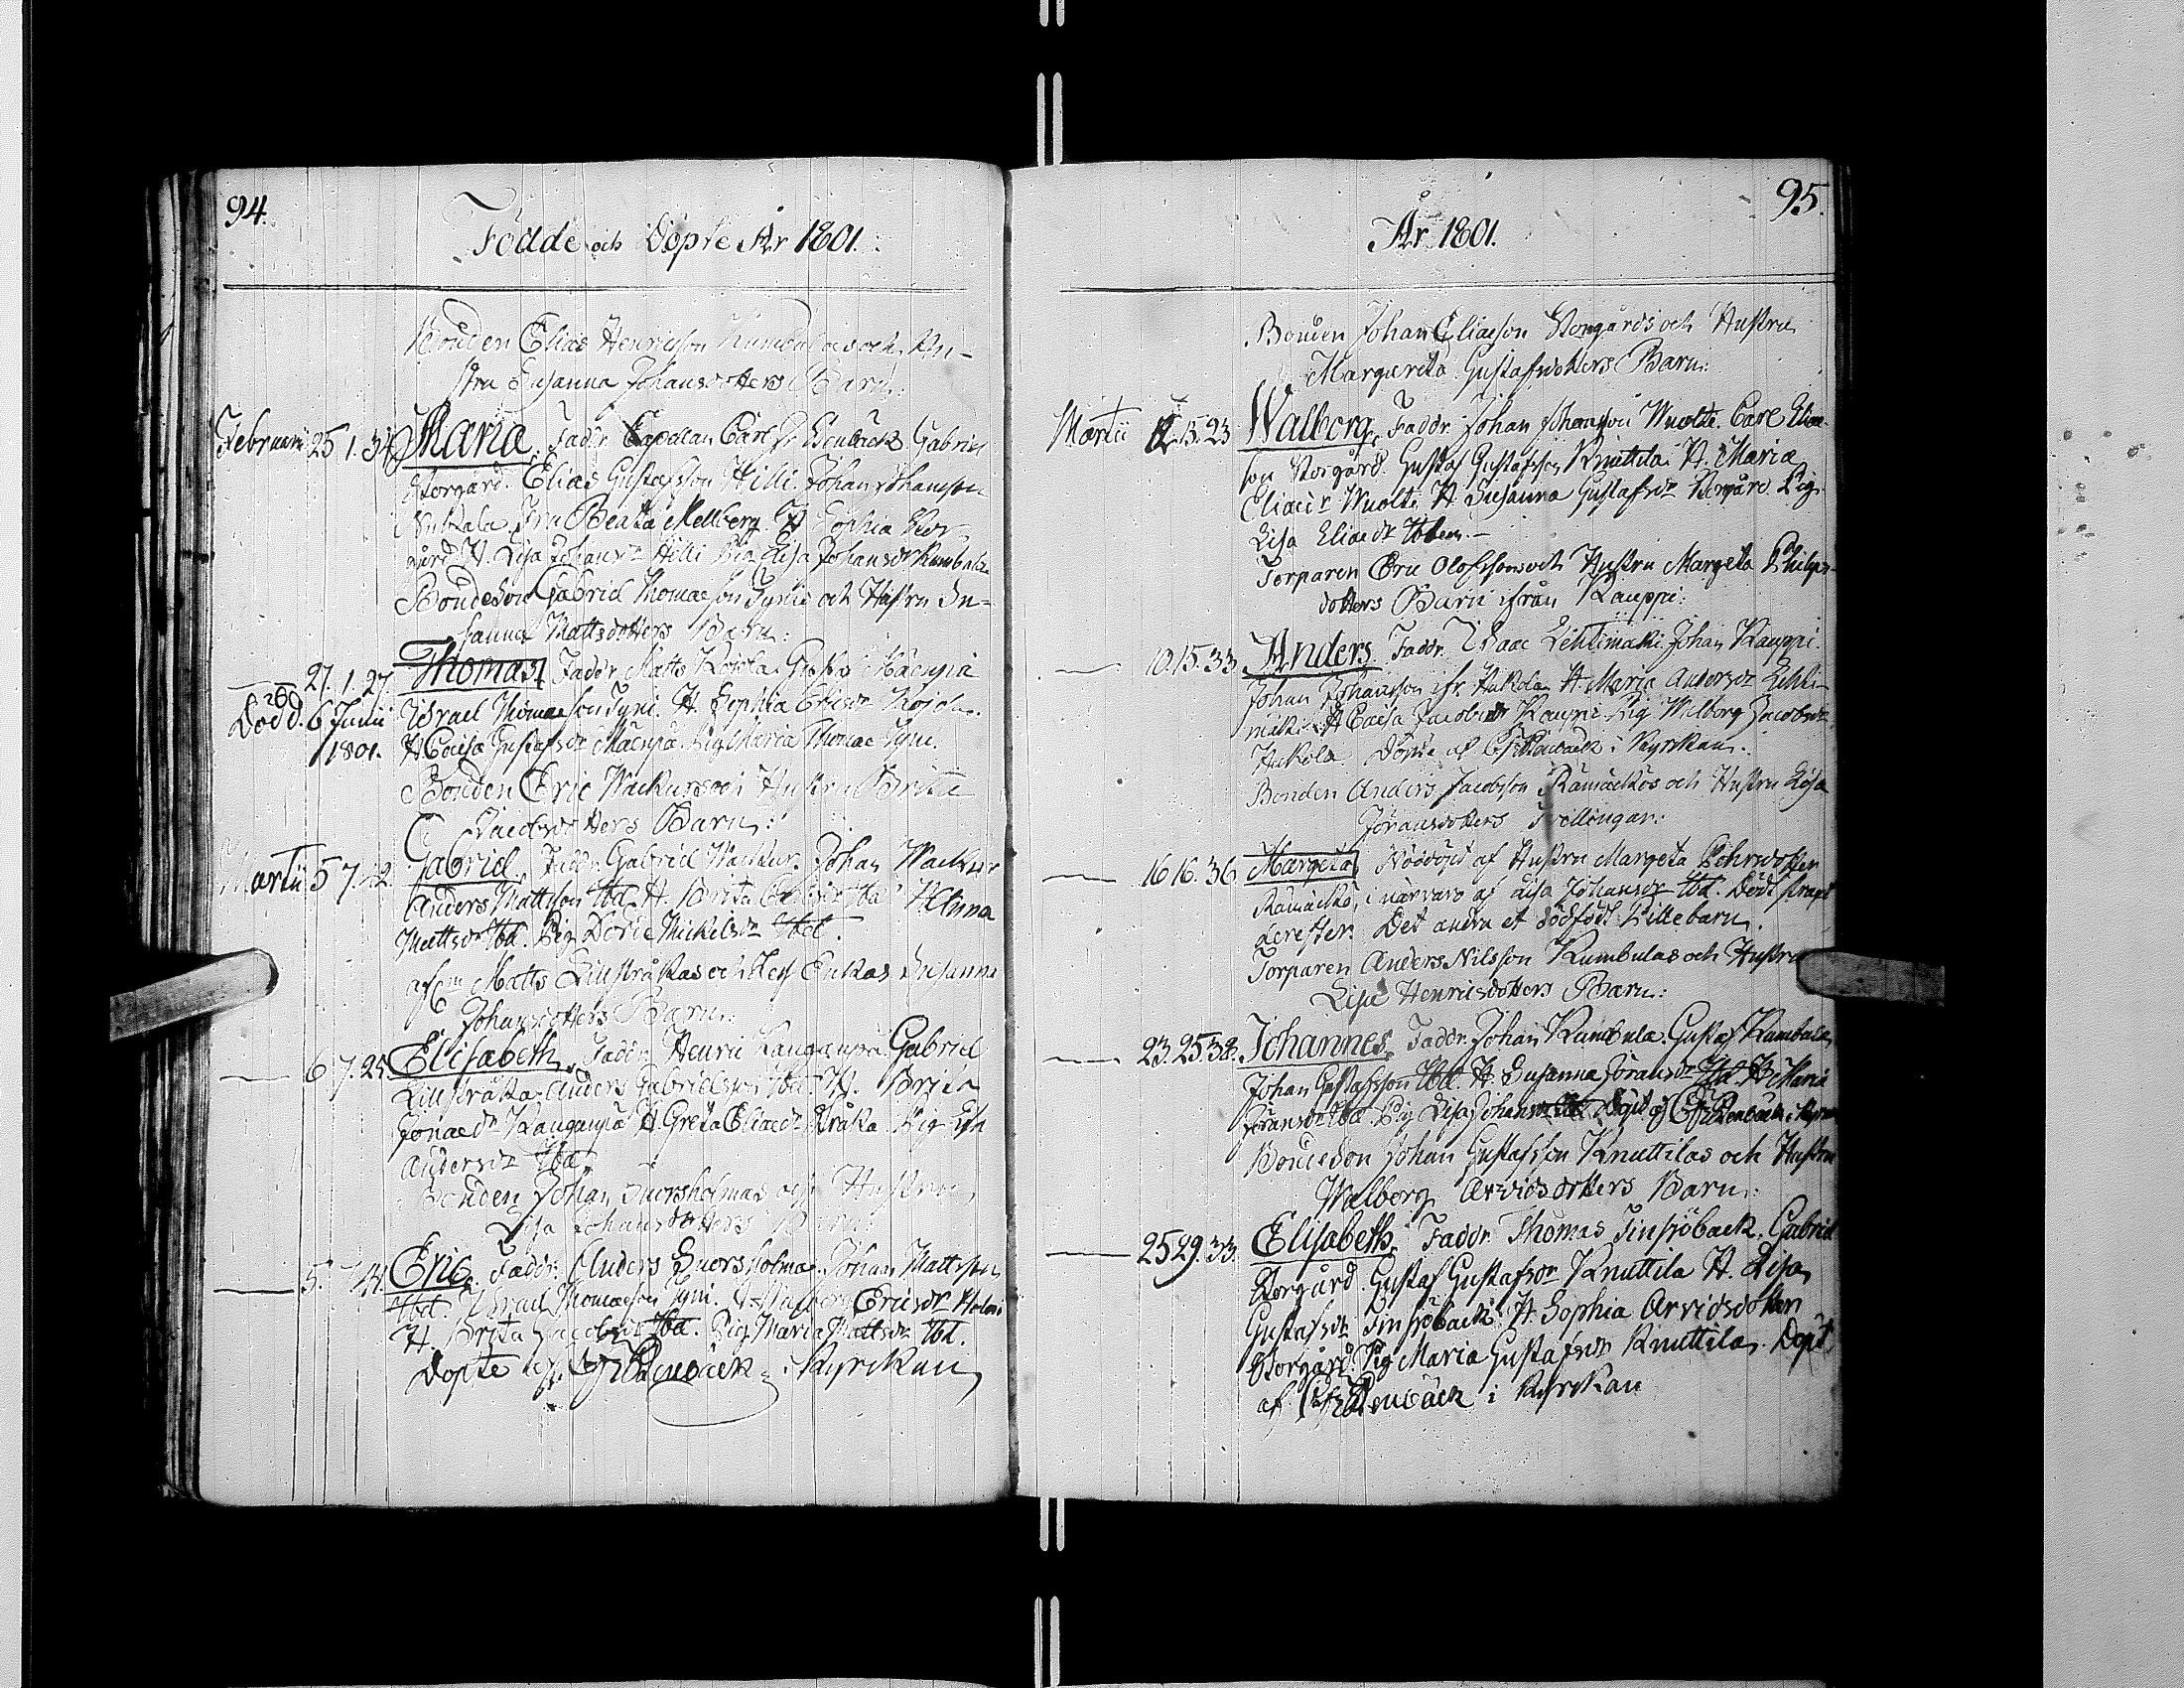 94.
Födde och Döpte År 1801.
Bonden Elias Henricsson Kumbulas och Hu-
stru Susanna Johansdotters Barn:
Februarii 25 1. 34 Maria. Faddr Capellan Carl Fr Elenbäck Gabriel
Storgård. Elias Gustafsson Hilli. Johan Johansson
Fru Beata Mellberg. H Sophia Stor-
gård H. Lisa Johansdr Hilli Pig Lisa Johansdr Kumbula
Bondeson Gabriel Thomasson Tynis och Hustru Su-
sanna Mattsdotters Barn:
27. 1. 27. Thomas. Faddr Matts Kojola Gustaf Mäenpää
Död. 6 Junii Israel Thomasson Tyni. H. Sophia Ericsdr Kojola.
1801. H Caisa Gustafsdr Mäenpä. Pig Maria Thomae Tyni.
Bonden Eric Wackurs och Hustru Britta
Jacobsdotters Barn:
Martii 5 7. 42. Gabriel. Faddr. Gabriel Wackur. Johan Wackur
Anders Mattsson Ibd. H. Brita Ibd H Anna
Mattsdr Ibd. Pig Doric Mickelsdr Ibd.
Matts Lillstråkas och Enkas Susanna
Johansdotters Barn:
6 7. 25. Elisabeth. Faddr. Henric Kangaspä Gabriel
Lillstråka. Anders Gabrielsson Ibd. H. Brita
Jonaedr Kangaspä H Greta Eliaedr Stråka. Pig Lisa
Andersdr Ibd.
Bonden Johan Suorsholmas och Hustru
Lisa Johansdotters Barn:
5. 7 44. Eric. Faddr. Anders Suorsholma. Johan Mattsson
Ibd. Israel Thomaeson Tyni. H Walborg Ericsdr
H. Brita Jacobsdr Ibd. Pig. Maria Mattsdr Ibd.
Döpte af i Kyrckan
95.
År 1801.
Bonden Johan Eliaeson Storgårds och Hustru
Margareta Gustafsdotters Barn:
Martii 12. 15. 23 Walborg. Faddr. Johan Johansson Wuolti. Carl Eliae-
son Storgård. Gustaf Gustafsson Knuttila. H. Maria
Eliaedr Wuolti. H Susanna Gustafsdr Storgård Pig
Lisa Eliaedr Ibdem.
Torparen Eric Olofssons och Hustru Margeta Philips-
dotters Barn ifrån Kauppi:
10. 15. 33. Anders. Faddr. Isaac Lehtimäki. Johan Kauppi.
Johan Johansson ifr. Hukola. H. Maria Andersdr Lehti-
mäki H Caisa Jacobsdr Kauppi Pig Walborg Jacobsdr
Hukola. Döpte af i Kyrckan.
Bonden Anders Jacobsson Rämäckös och Hustru Lisa
Jöransdotters Tvillingar:
16 16. 36. Margeta Nöddöpt af Hustru Margeta Pehrsdotter
Rämäckö, i närvaro af Lisa Johansdr Ibd. Dödt strax
derefter. Det andra et dödfödt Gillebarn.
Torparen Anders Nilsson Kumbulas och Hustru
Lisa Henricsdotters Barn:
23. 25. 38. Johannes. Faddr. Johan Kumbula. Gustaf Kumbula
Johan Gustafsson Ibd. H. Susanna Jöransdr Ibd. H Maria
Jöransdr Ibd. Pig Lisa Johansdr Ibd. Döpt af i Kyrckan
Bondeson Johan Gustafsson Knuttilas och Hustru
Walborg Arvidsdotters Barn:
25 29. 33. Elisabeth. Faddr Thomas Finsjöback. Gabriel
Storgård. Gustaf Gustafsson Knuttila H. Lisa
Gustafsdr Finsjöback. H. Sophia Arvidsdotter
Storgård. Pig Maria Gustafsdr Knuttila. Döpt
af i Kyrckan